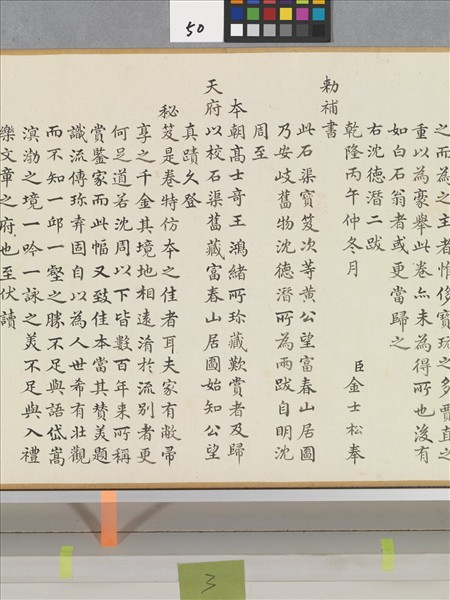 50
之而為之主者惟侈寶玩之多賈直之
重以為豪舉此卷亦未為得所也後有
如白石翁者或更當歸之
右沈德潛二跋
乾隆丙午仲冬月 臣金士松奉
勅補書
此石渠寶笈次等黃公望富春山居圖
乃安岐舊物沈德潛所為兩跋自明沈
周至
本朝高士奇王鴻緒所珍藏歎賞者及歸
天府以校石渠舊藏富春山居圖始知公望
真蹟久登
秘笈是卷特仿本之佳者耳夫家有敝帚
享之千金其境地相遠淆於流別者更
何足道若沈周以下皆數百年来所稱
賞鑒家而此幅又致佳本當其贊美題
識流傳珍弆固自以為人世希有壯觀
而不知一邱一壑之勝不足與語岱嵩
溟渤之境一吟一詠之美不足與入禮
樂文章之府也至伏讀
3